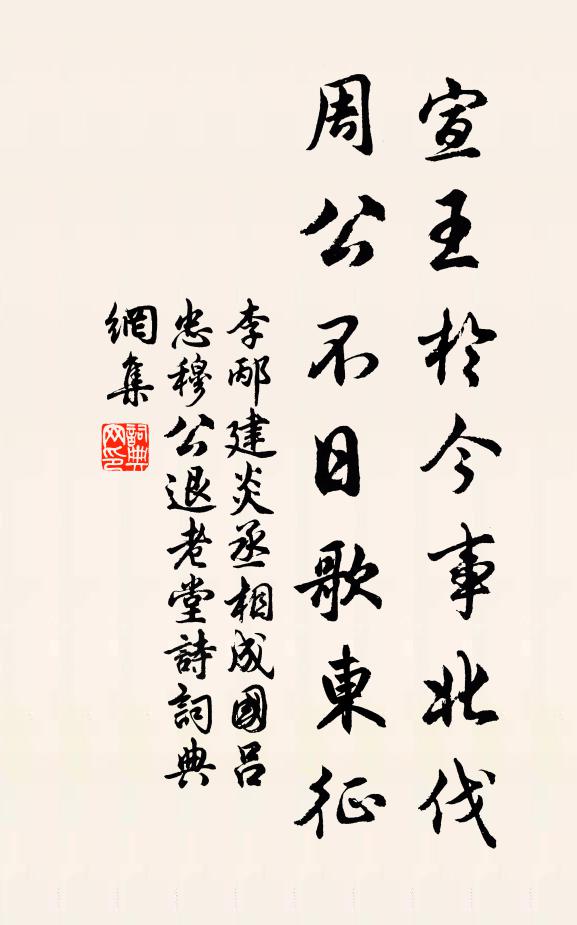 宣王於今事北伐
周公不日歌東征
李邴建炎丞相成國呂
忠穆公退老堂詩詞典
網集
詞典網印